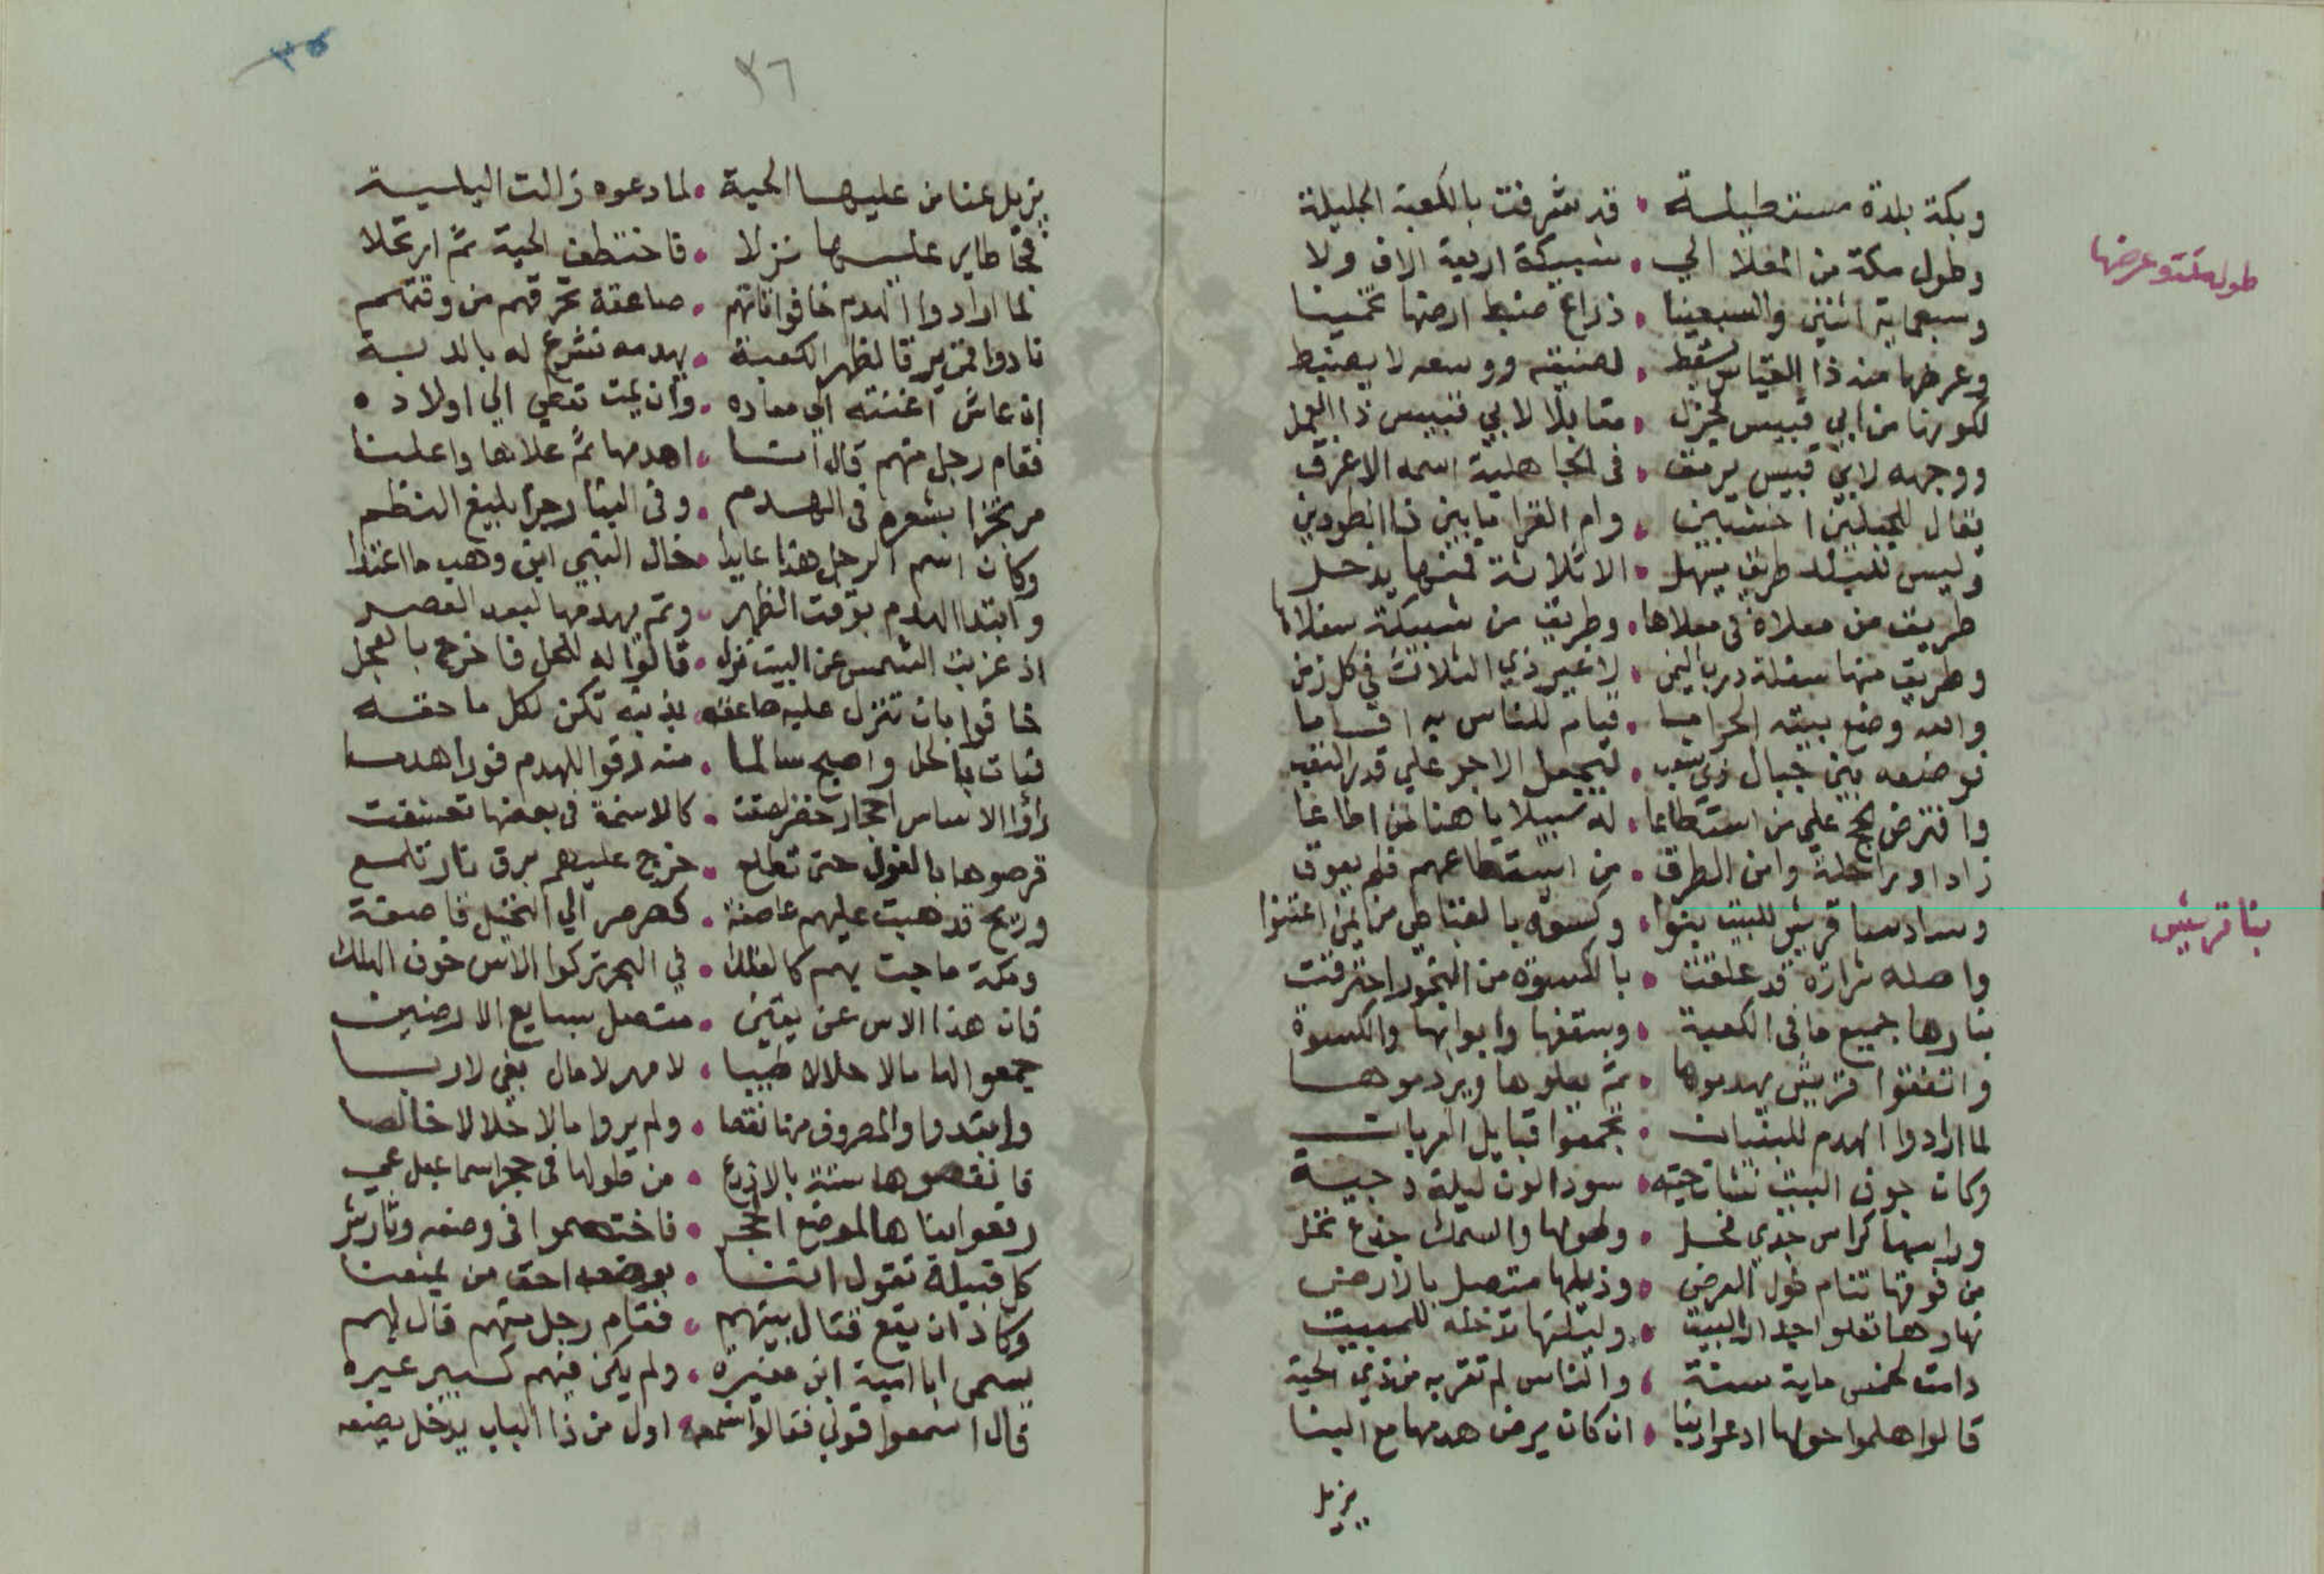 طول مكة وعرضها
وبكة بلدة مستطيلة • قد شرفت بالكعبة الجليلة
وطول مكة من المعلا الي • شبيكة اربعة الاف ولا
وسبعماية اثنين والسبعينا • ذراع ضبط ارضها تخمينا
وعرضها منه ذا القياس يسقط • لضيقه ووسعه لا يضبط
لكونها من ابي قبيس لجزل • مقابلا لابي قبيس ذا الجبل
ووجهه لابي قبيس يرمق • في الجاهلية اسمه الاعرف
يقال للجبلين اخشبين • وام القرا ما بين ذا الطودين
وليس للبلد طريق يسهل • الا ثلاثة فمنها يدخل
طريق من معلاة في معلاها • وطريق من شبيكة سفلاها
وطريق منها سفلة درب اليمن • لا غير ذي الثلاث في كل زمن
والله وضع بيته الحراما • قيام للناس به اقساما
فوضعه بين جبال ذي شعب • ليجعل الاجر علي قدر التعب
وافترض الحج علي من استطاعا • له سبيلا يا هنا لمن اطاعا
زادا وراحلة وامن الطرق • من استطاعهم فلم يعوق
بنا قريش
وسادسا قريش للبيت بنوا • وكسوه بالقباطي من لمن اعتنوا
واصله شرارة قد علقت • بالكسوة من البخور احترقت
بنارها جميع ما في الكعبة • وسقفها وابوابها والكسوة
واتفقوا قريش يهدموها • ثم يعلوها ويردموها
لما ارادوا الهدم للبنيان • تجمعوا قبايل العربان
وكان جوف البيت نشات حية • سودا لون ليلة دجية
وراسها كراس جدي نحل • وطولها والسمك جذع نخل
من فوقها تنام طول العرض • وذيلها متصل بالارض
نهارها تعلوا جدار البيت • وليلتها تدخله للمبيت
دامت لخمس ماية سنة • والناس لم تقربه من ذي الحية
قالوا هلموا حولها ادعوا ربنا • ان كان يرضي هدمها مع البنا
يزيل
٣٦
يزيل عنا من عليها الحية • لما دعوه زالت البلية
فجا طاير عليها نزلا • فاختطف الحية ثم ارتحلا
لما ارادوا الهدم خافوا تاتهم • صاعقة تحرقهم من وقتهم
نادوا فمن يرقا لظهر الكعبة • يهدمه نشرع له بالدية
ان عاش اغنته الي معاده • وان يمت تعطي الي اولاده
فقام رجل منهم قال انا • اهدمها ثم علاها واعلنا
مرتجزا بشعره في الهدم • وفي البنا رجزا بليغ النظم
وكان اسم الرجل هذا عايذا • خال النبي ابن وهب ما اغتذا
وابتدا الهدم بوقت الظهر • وتم يهدمها لبعد العصر
اذ غربت الشمس عن البيت نزل • قالوا له للحل فاخرج بالعجل
خافوا بان تنزل عليه صاعقة • بذنبه تكن لكل ماحقة
فبات بالحل واصبح سالما • منه رقوا للهدم فورا هدما
راوا الاساس احجار خضر لصقت • كالاسنمة في بعضها تعشقت
قرصوها بالفول حتى تطلع • خرج عليهم برق نار تلمع
وريح قد هبت عليهم عاصفة • كصرصر الي النخل قاصفة
ومكة ماجت بهم كالفلك • في البحر تركوا الاس خوف الهلك
فان هذا الاس عن يقين • متصل بسابع الارضين
جمعوا لها مالا حلالا طيبا • لا مهر لا مال بغي لا ربا
وابتدوا والمصروف منها نقصا • ولم يروا مالا حلالا خالصا
فانقصوها ستة بالاذرع • من طولها في حجر اسماعيل عي
رفعوا بناها لموضع الحجر • فاختصموا في وضعه وثار شر
كل قبيلة تقول اننا • بوضعه احق من يمنعنا
وكاد ان يقع قتال بينهم • فقام رجل منهم قال لهم
يسمى ابا امية ابن مغيرة • ولم يكن فيهم كبير غيره
قال اسمعوا قولي فقالوا اسمعه • اول من ذا الباب يدخل يضعه